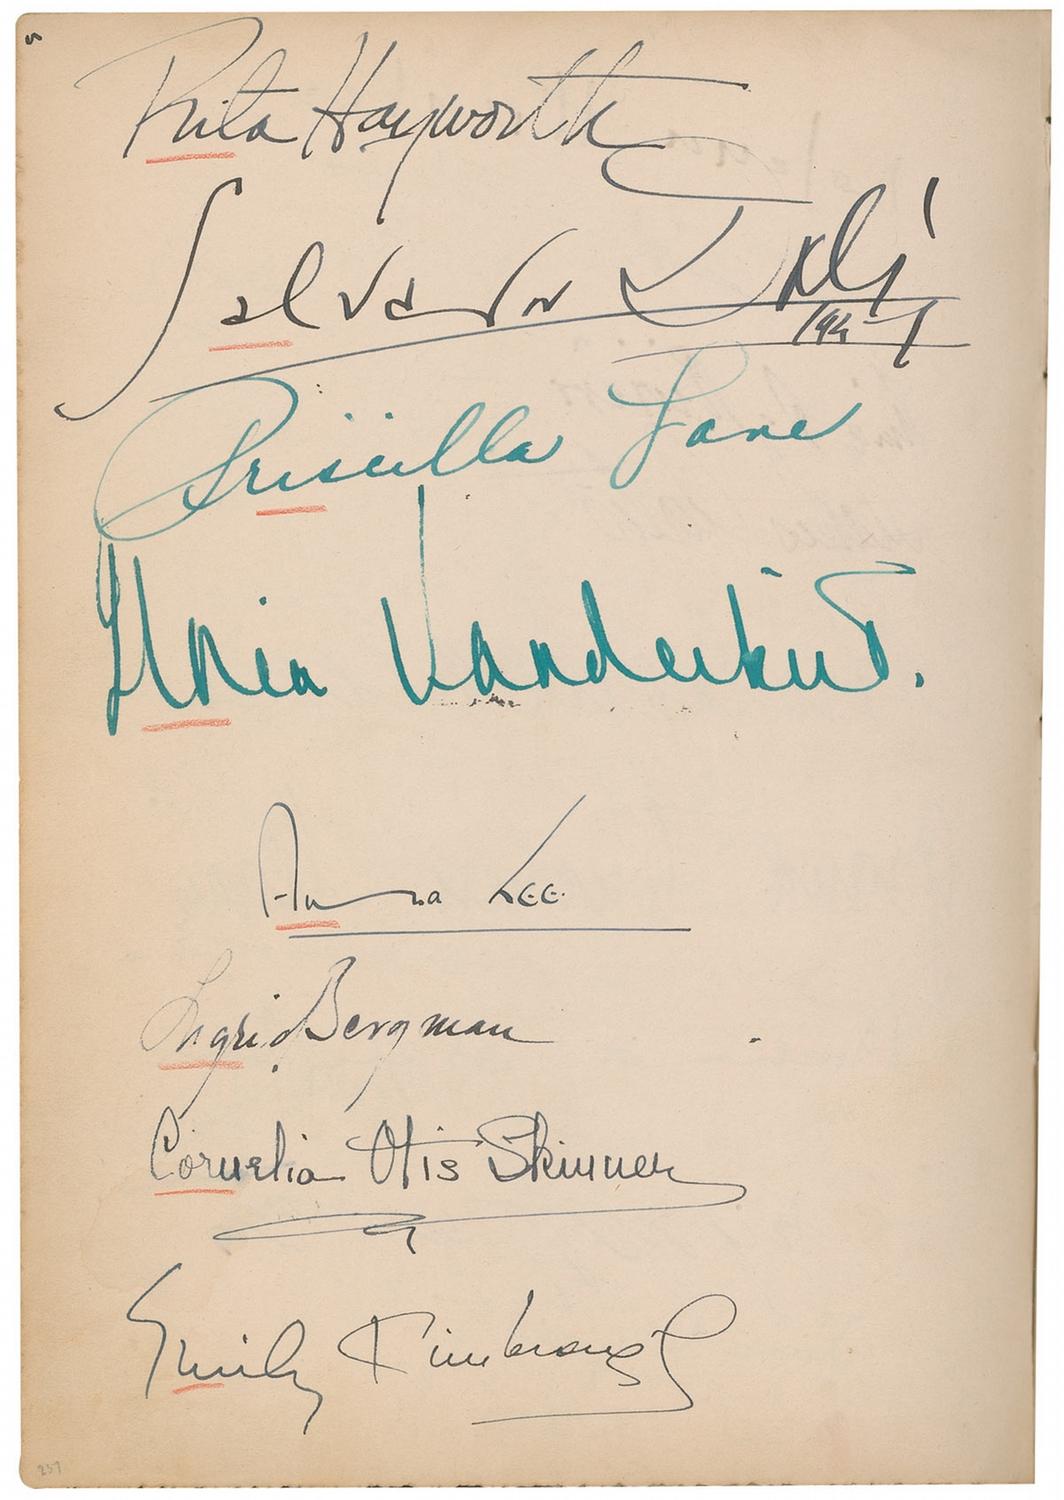 Rita Hayworth
Salvador Dalí
194
Priscilla Lane
Gloria Vanderbilt.
Anna Lee
Ingrid Bergman
Cornelia Otis Skinner
Emily Kimbrough
237